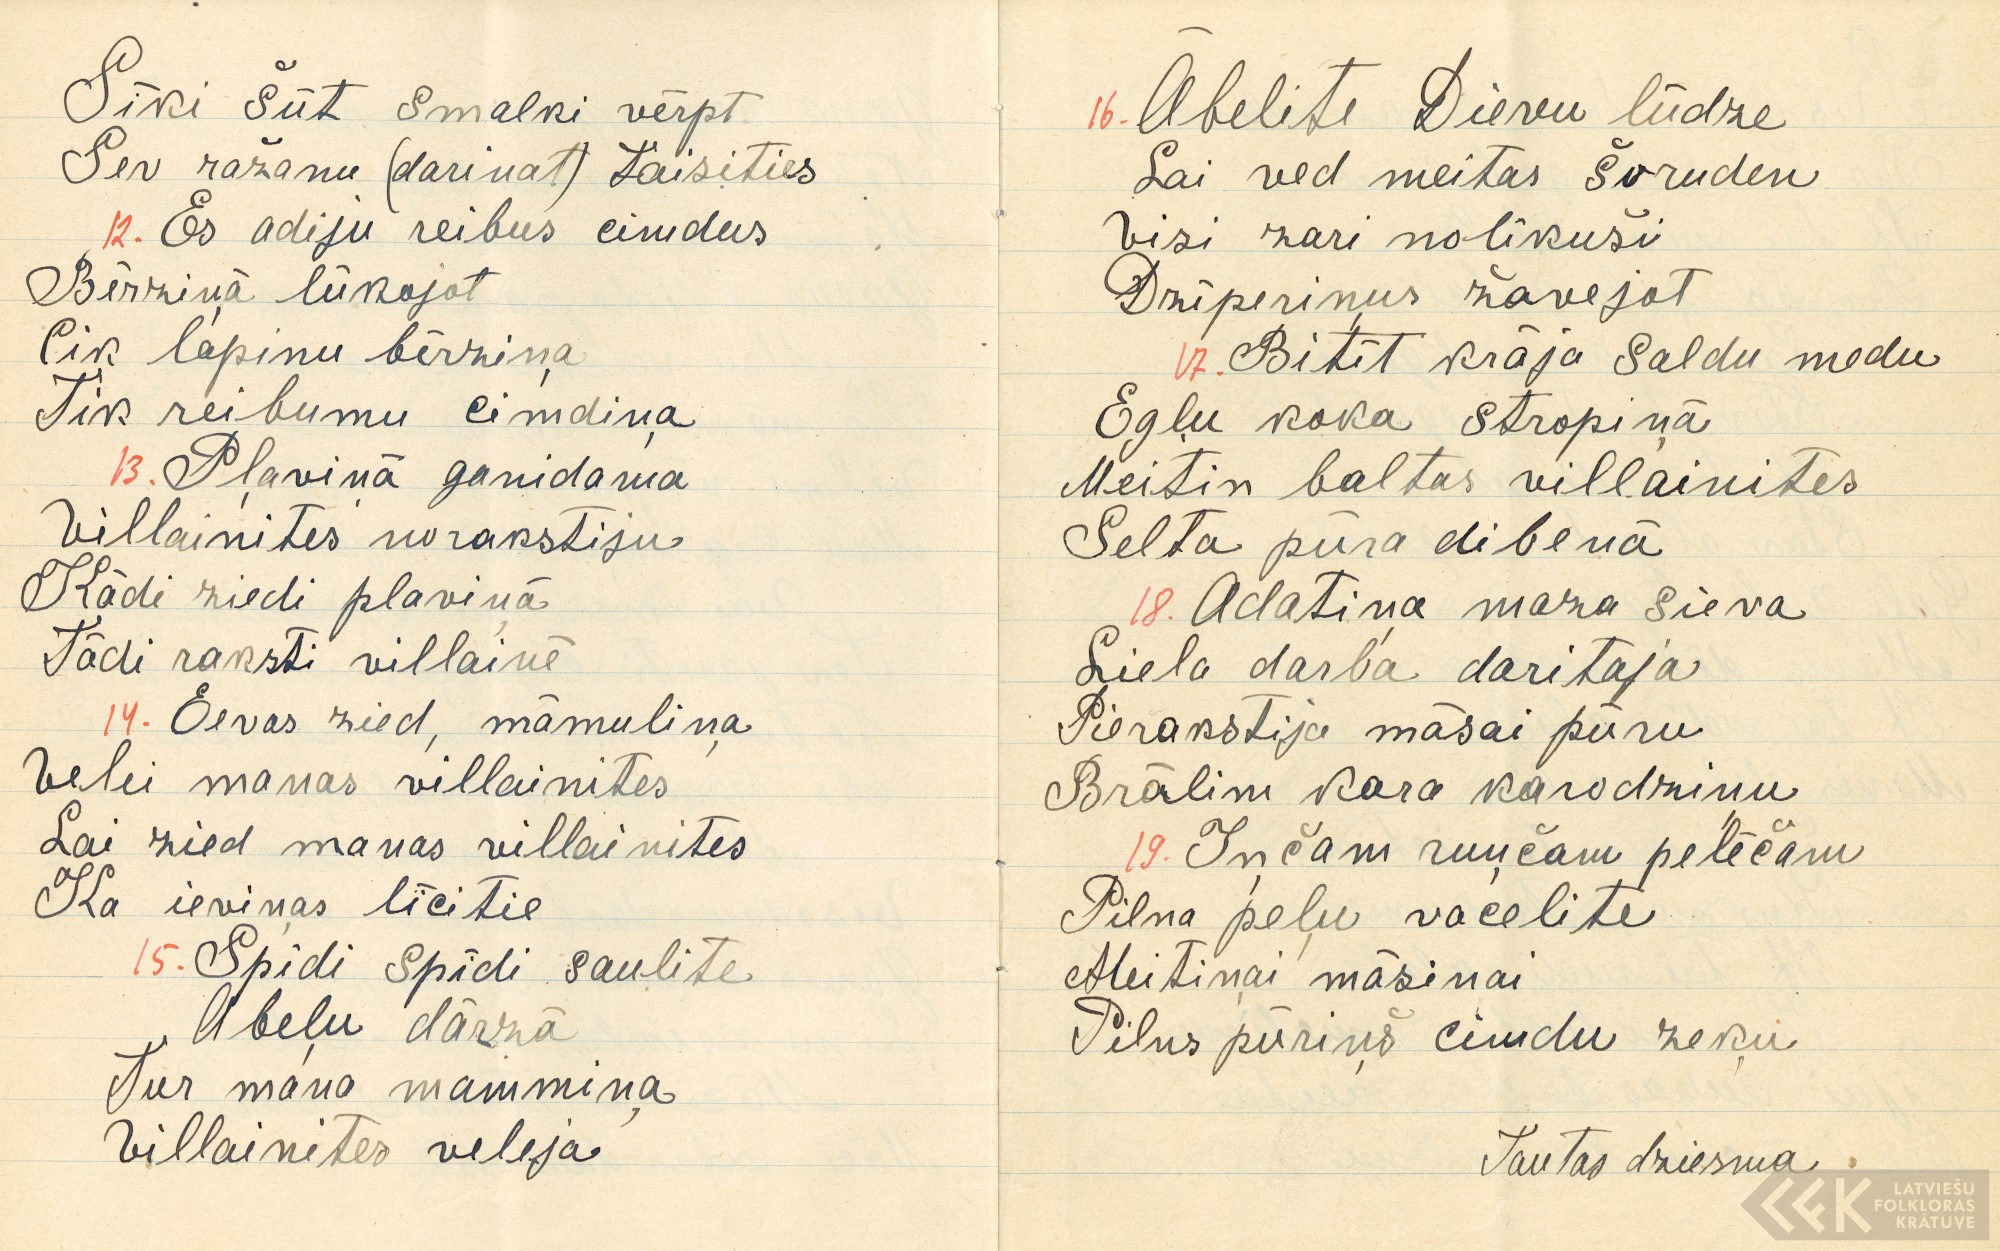 Sīki šūt smalki vērpt
Sev ražanu (darinat) taisities
12. Es adiju reibus cimdus
Bērziņā lūkojot
Cik lapinu bērziņa
Tik reibumu cimdiņa
13. Pļaviņā ganidama
Villainites norakstiju
Kādi ziedi plaviņā
Tādi raksti villainē
14. Eevas zied, māmuliņa
Velei manas villainites
Lai zied manas villainites
Ka ieviņas līcitie
15. Spīdi spīdi saulite
Abeļu dārzā
Tur mana mammiņa
Villainites veleja
16. Ābelite Dievu lūdze
Lai ved meitas šoruden
Visi zari nolīkuši
Dzīperiņus žavejot
17. Bitīt krāja saldu medu
Egļu koka stropiņā
Meitin baltas villainites
Selta pūra dibenā
18. Adatiņa maza sieva
Liela darba daritaja
Pierakstija māsai pūru
Brālim kara karodziņu
19. Iņčam ruņčam pelēčam
Pilna peļu vacelite
Meitiņai māsinai
Pilns pūriņš cimdu zeķu
Tautas dziesma
LATVIEŠU
FOLKLORAS
KRĀTUVE